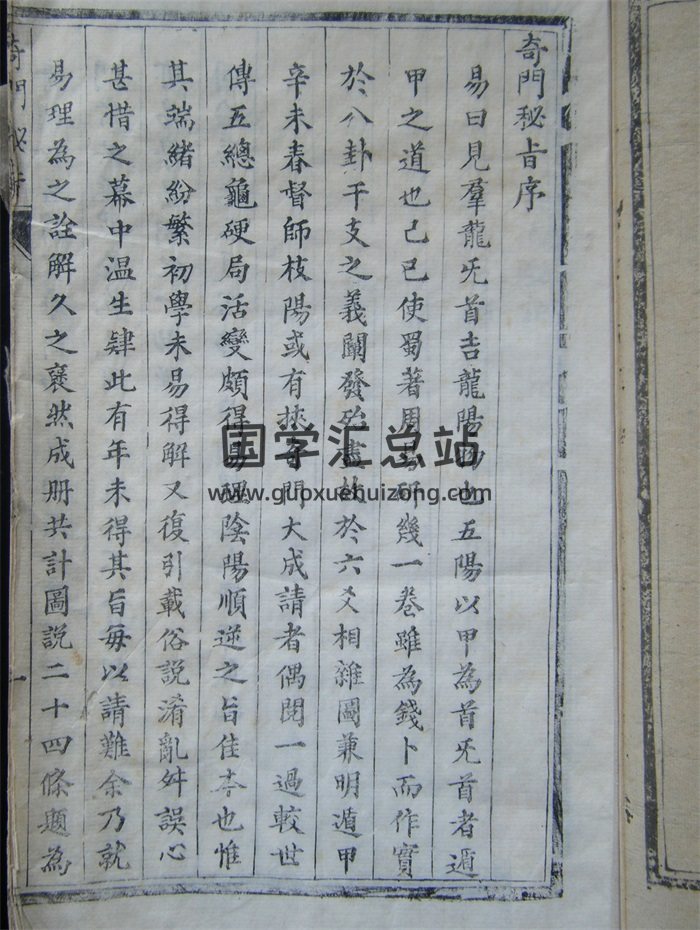 奇門秘旨序
易曰見羣龍旡首吉龍陽物也五陽以甲為首旡首者遁
甲之道也己巳使蜀著周易研幾一卷雖為錢卜而作實
於八卦干支之義闡發殆盡故於六爻相雜圖兼明遁甲
辛未春督師枝陽或有挾奇門大成請者偶閱一過較世
傳五總龜硬局活變頗得易理陰陽順逆之旨佳本也惟
其端緒紛繁初學未易得解又復引載俗說淆亂舛誤心
甚惜之幕中温生肄此有年未得其旨每以請難余乃就
易理為之詮解久之裒然成册共計圖說二十四條題為
奇門秘
一
国学汇总站
www.guoxuehuizong.com